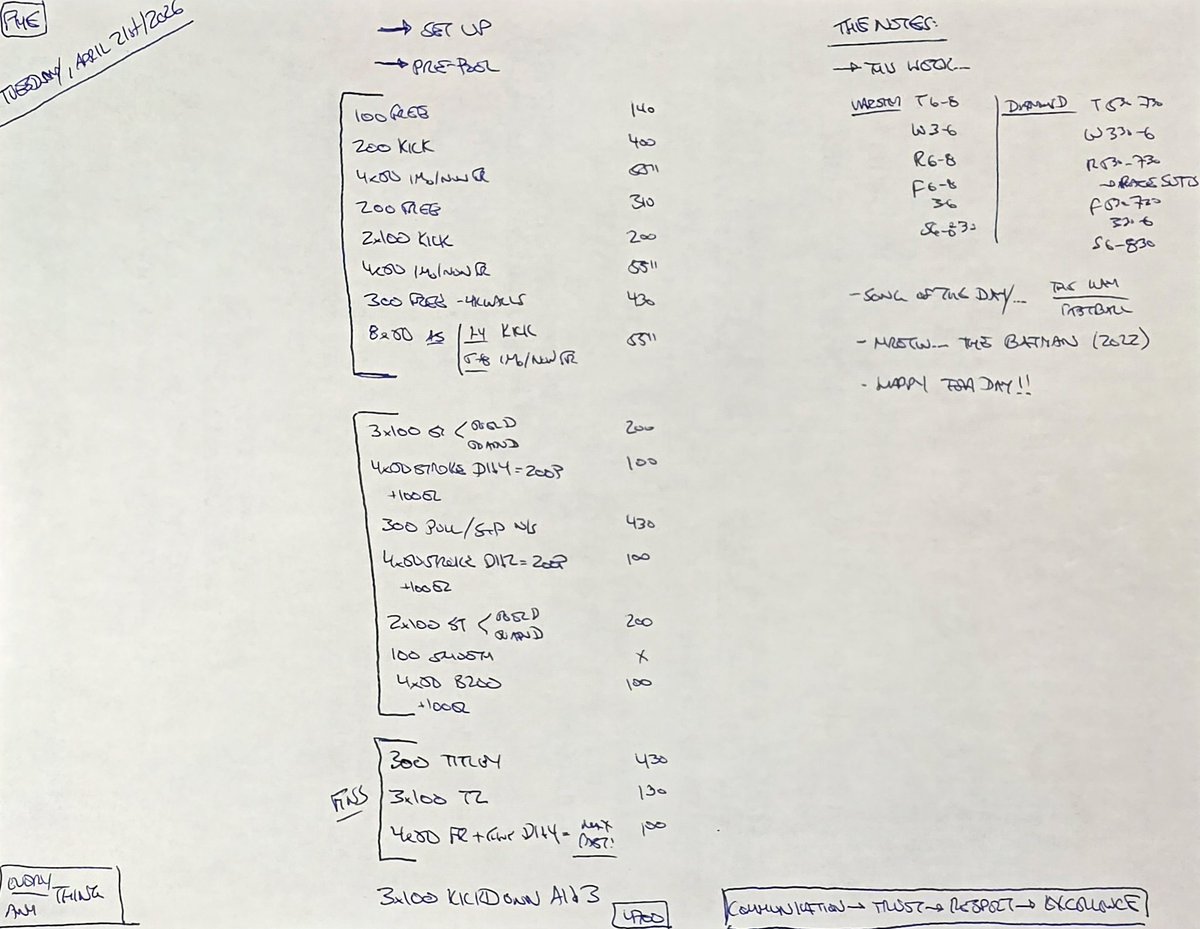 TUESDAY, APRIL 21st/2026
→ SET UP
→ PRE-POOL
100 FREE 140
200 KICK 400
4x50 IMO/NON FR 55"
200 FREE 310
2x100 KICK 200
4x50 IMO/NON FR 55"
300 FREE -4KWALLS 430
8x50 AS 1-4 KICK 55"
5-8 IMO/NON FR
3x100 ST 200
4x50 STROKE D1-4 = 200P 100
+100EZ
300 PULL/ N/S 430
4x50 STROKE = 200P 100
+100EZ
2x100 ST 200
100 SMOOTH X
4x50 B200 100
+100EZ
FINS
300 430
3x100 130
4x50 FR D1-4 = 100
FAST!
3x100 KICK DOWN 3
4700
THE NOTES:
→ THIS WEEK...
VARSITY T6-8
W3-6
R6-8
F6-8
36
S6-830
DIAMOND T530-730
W330-6
R530-730
→ RACE SUITS
F530-730
330-6
S6-830
- SONG OF THE DAY... THE WAY
FASTBALL
- MROTW... THE BATMAN (2022)
- HAPPY DAY!!
EVERY THING
ANY
COMMUNICATION → TRUST → RESPECT → EXCELLENCE